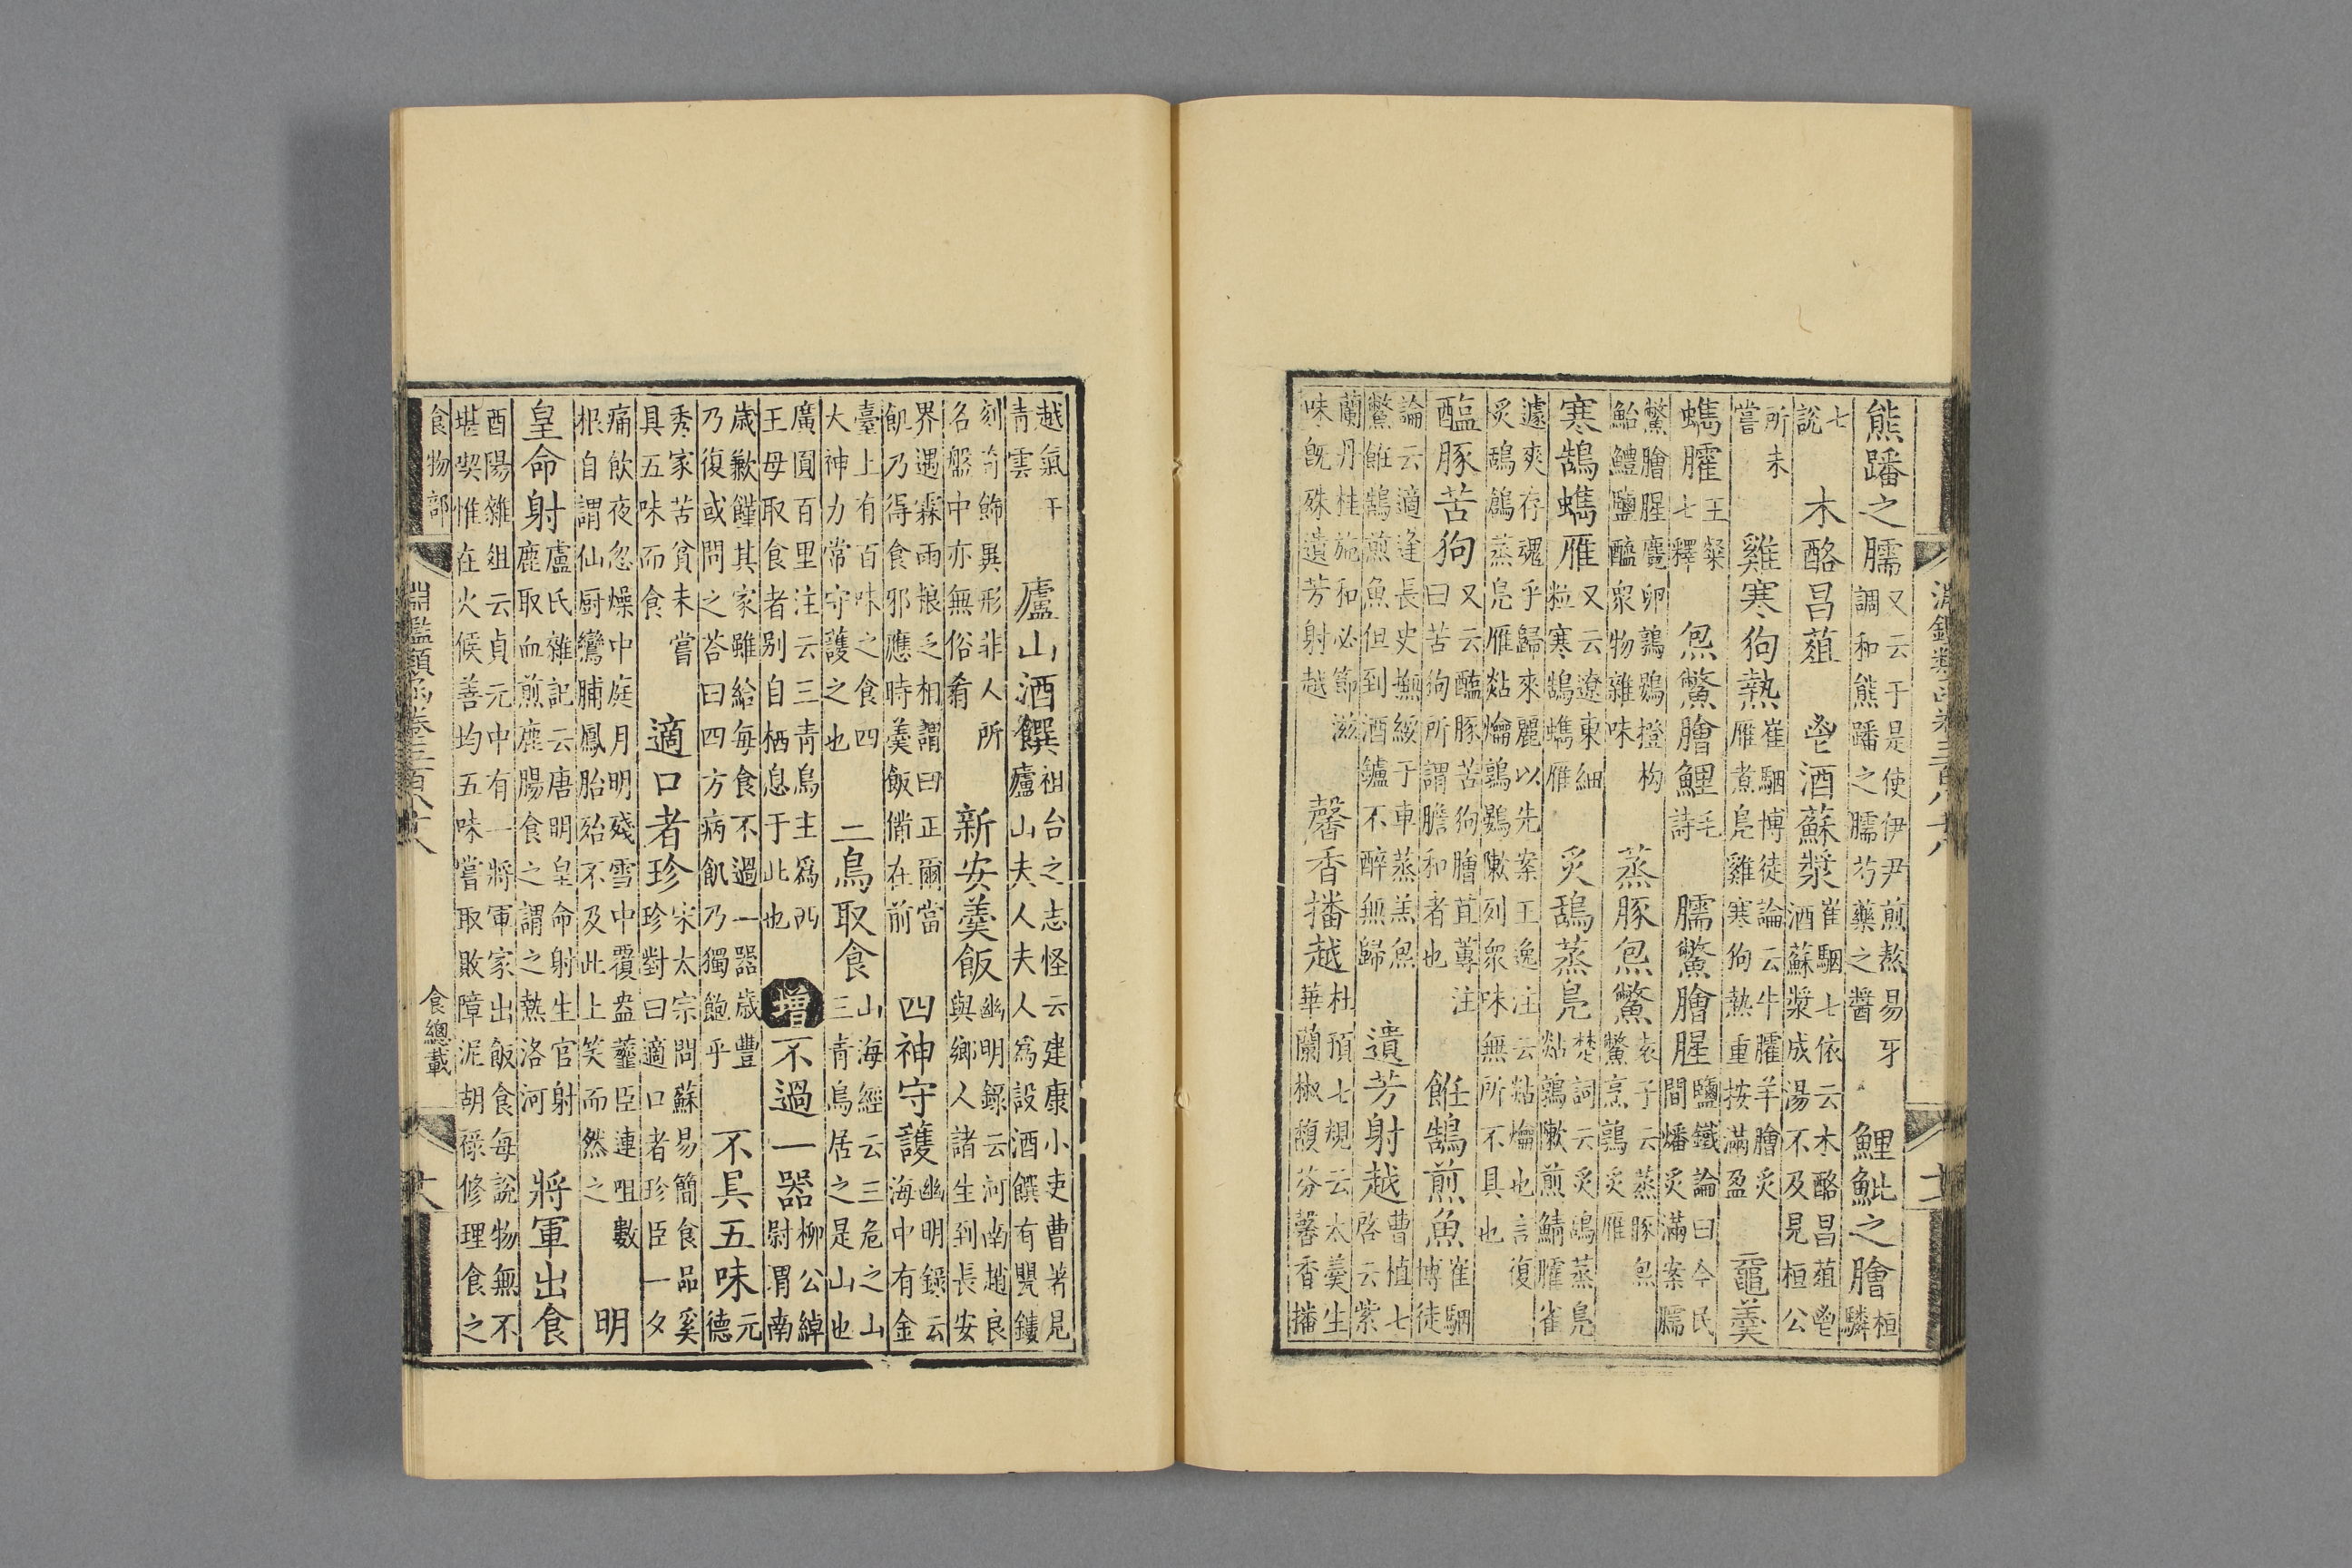 淵鑑類函卷三百八十八
熊蹯之臑又云于是使伊尹煎熬易牙調和熊蹯之臑芍藥之醬　鯉魮之膾桓驎
七說　木酪昌葅　鬯酒蘇漿崔駰七依云木酪昌葅鬯酒蘇漿成湯不及見桓公
所未嘗　雞寒狗熱崔駰博徒論云牛臛羊膾炙雁煮鳧雞寒狗熱重按滿盈　黿羹
蠵臛王粲七釋　炰鱉膾鯉毛詩　臑鱉膾腥鹽鐵論曰今民間燔炙滿案臑
鱉膾腥麑卵鶉鷃橙枸鮐鱧鹽醯衆物雜味　蒸豚炰鱉袁子云蒸豚炰鱉烹鶉炙雁
寒鵠蠵雁又云遼東細粒寒鵠蠵雁　炙鴰蒸鳧楚詞云炙鴰蒸鳧煔鶉敶煎鯖臛雀
遽爽存魂乎歸來麗以先案王逸注云煔爚也言復炙鴰鴿蒸鳧雁煔爚鶉鷃敶列衆味無所不具也
醢豚苦狗又云醢豚苦狗膾苴蓴注曰苦狗所謂膽和者也　餁鵠煎魚崔駰博徒
論云適逢長史撫綏于車蒸羔炰鱉餁鵠煎魚但到酒鑪不醉無歸　遺芳射越曹植七啓云紫
蘭丹桂施和必節滋味旣殊遺芳射越　馨香播越杜預七規云太羹生華蘭椒馥芬馨香播
越氣干青雲　廬山酒饌祖台之志怪云建康小吏曹著見廬山夫人夫人爲設酒饌有甖鏤
刻奇飾異形非人所名盤中亦無俗肴　新安羹飯幽明錄云河南趙良與鄉人諸生到長安
界遇霖雨粮乏相謂曰正爾當飢乃得食邪應時羹飯備在前　四神守護幽明錄云海中有金
臺上有百味之食四大神力常守護之也　二鳥取食山海經云三危之山三青鳥居之是山也
廣圓百里注云三青鳥主爲西王母取食者别自栖息于此也　增不過一器柳公綽尉渭南
歲歉饉其家雖給每食不過一器歲豐乃復或問之荅曰四方病飢乃獨飽乎　不具五味元德
秀家苦貧未嘗具五味而食　適口者珍宋太宗問蘇易簡食品奚珍對曰適口者珍臣一夕
痛飲夜忽燥中庭月明殘雪中覆盎虀臣連咀數根自謂仙厨鸞脯鳳胎殆不及此上笑而然之　明
皇命射盧氏雜記云唐明皇命射生官射鹿取血煎鹿腸食之謂之熱洛河　將軍出食
酉陽雜俎云貞元中有一將軍家出飯食每說物無不堪喫惟在火候善均五味嘗取敗障泥胡祿修理食之
食物部　淵鑑類函卷三百八十八　食總載